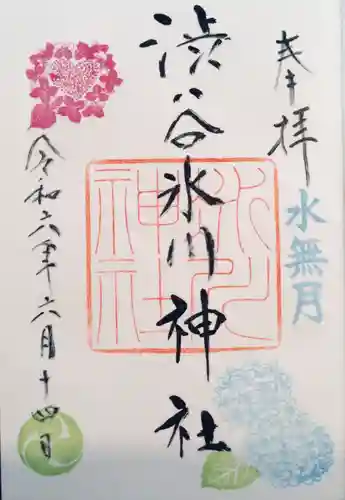 奉拝
水無月
渋谷氷川神社
氷川
神社
令和六年六月十四日